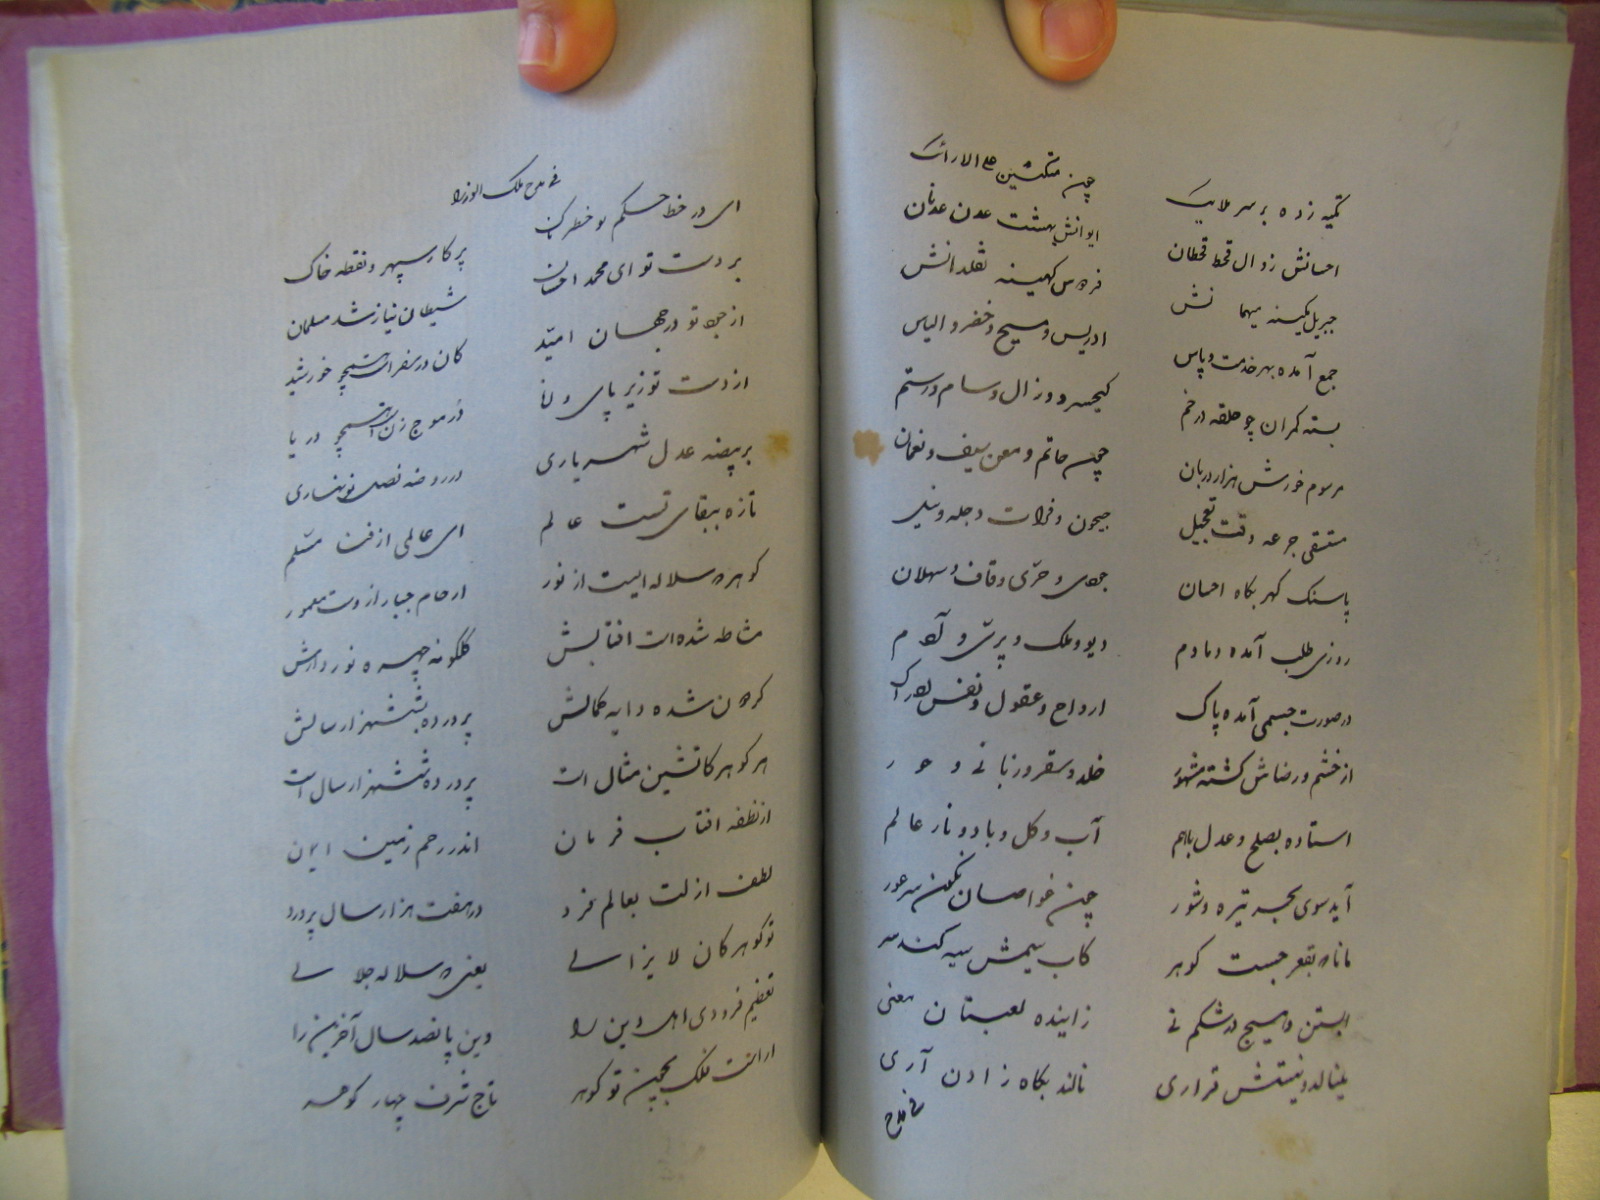 تکیه زده بر سر ملایک
چون متکئین علی الارائک
احسانش زوال قحط قحطان
ایوانش بهشت عدن عدنان
جبریل کمینه میهما نش
فردوس کهینه نقلدانش
جمع آمده بهر خدمت و پاس
ادریس و مسیح و خضر و الیاس
بسته کمران چو حلقه در خم
کیخسرو و زال و سام و رستم
مرسوم خورش هزار دربان
چون حاتم و معن و سیف و نعمان
مستسقی جرعه وقت تعجیل
جیحون و فرات و دجله و نیل
پاسنک کهر بکاه احسان
جودی و حری و قاف و سهلان
روزی طلب آمده دمادم
دیو و ملک و پری و آدم
در صورت جسمی آمده پاک
ارواح و عقول و نفس و ادراک
از خشم و رضاش کشته مشهور
خلد و سقر و زبانی و حور
استاده بصلح و عدل باهم
آب و کل و باد و نار عالم
آید سوی بحر تیره و شور
چون غواصان نکون سر عور
ماناد بقعر جست کوهر
کاب سیمش سیه کند سر
ابستن و هیچ در شکم نی
زاینده لعبتان معنی
ننالد و نیستش قراری
نالند بکاه زادن آری
فی مدح
فی مدح ملک الوزرا
ای در خط حکم تو خطرناک
پرکار سپهر و نقطه خاک
بر دست تو ای محمد احسان
شیطان نیاز شد مسلمان
از جود تو در جهان امید
کان در سفر است همچو خورشید
از دست تو زیر پای و لا
در موج زن است همچو دریا
بر بیضه عدل شهریاری
در روضه فصل نوبهاری
تازه ببقای تست عالم
ای عالمی از فنا مسلم
کوهر و سلاله ایست از نور
ارحام جبار از دست معمور
مشاطه شده است افتابش
کلکونه چهره نور دارش
کردون شده دایه کمالش
پرورده بشش هزار سالش
هر کوهر کاتشین مثال است
پرورده شش هزار سال است
از نطفه افتاب فرمان
اندر رحم زمین ایوان
لطف ازلت بعالم خرد
در هفت هزار سال پرورد
تو کوهر کان لا یزالی
یعنی در سلاله جلالی
تعظیم فزودی اهل دین را
وین پانصد سال آخرین را
اراست فلک بچون تو کوهر
تاج شرف چهار کوهر